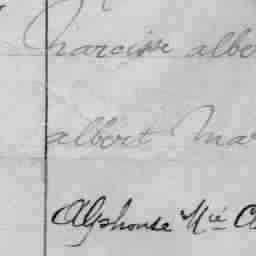 Narcisse albe
albert Mar
Alphonse Mie C